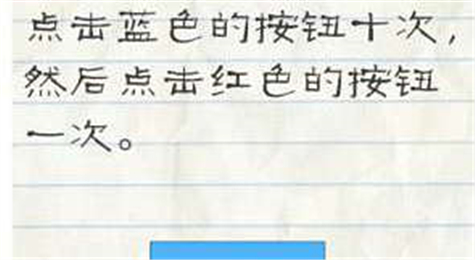 点击蓝色的按钮十次，
然后点击红色的按钮
一次。